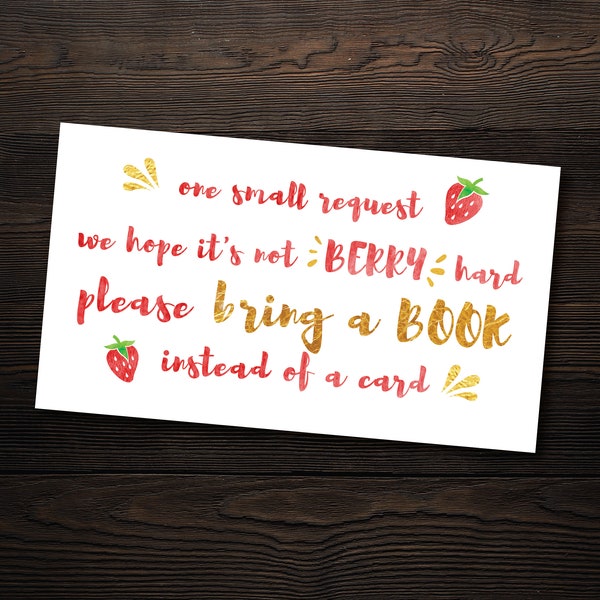 one small request
we hope it's not BERRY hard
please bring a BOOK
instead of a card